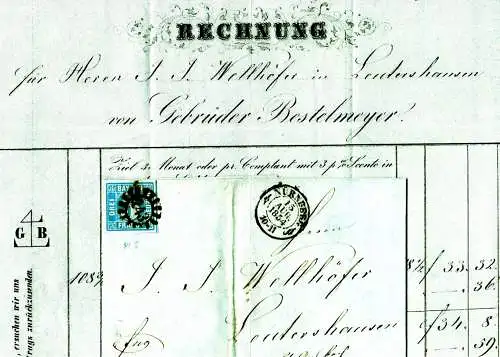 RECHNUNG
für Herrn J. J. Wellhöfer in Leutershausen
von Gebrüder Bestelmeyer.
Ziel 3 Monat oder pr. Comptant mit 3 p% Sconto in
BAY
DREI
NÜRNBERG
15
AUG.
1854
G B
Herrn
J. J. Wellhöfer
Leutershausen
f 33. 32.
36.
f 34. 8.
39.
ersuchen wir uns
zurückzusenden.